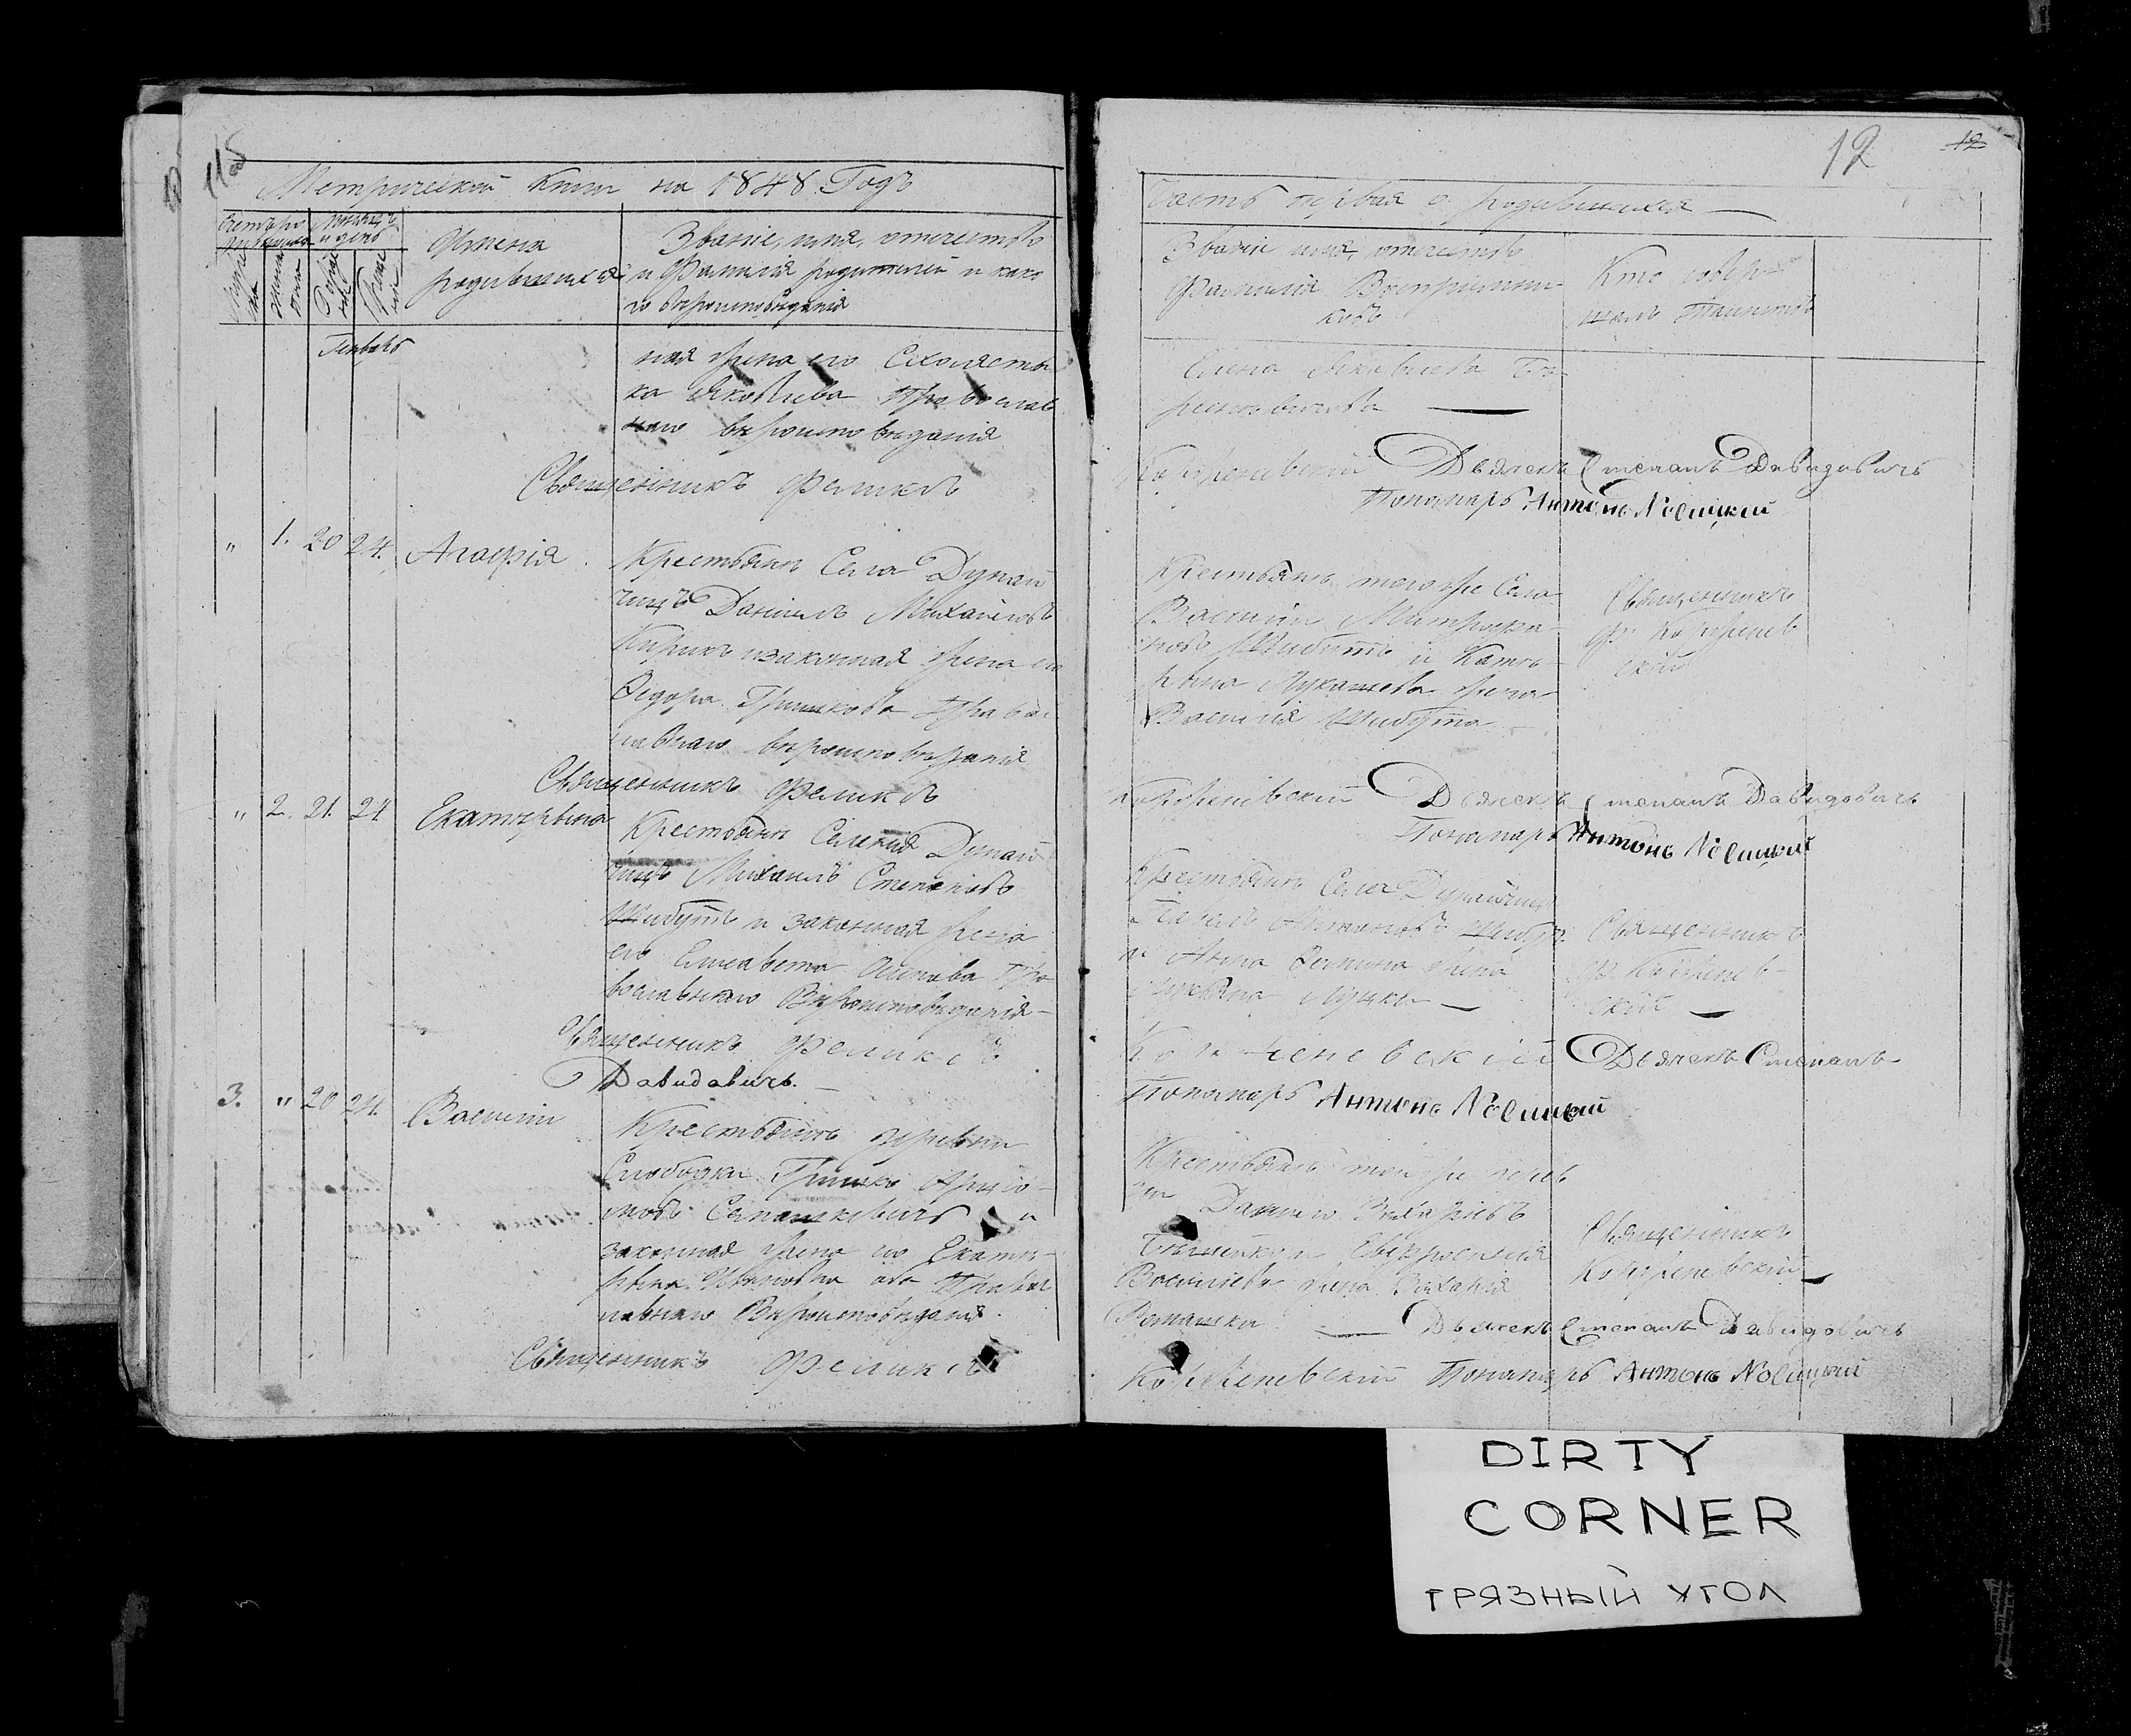 11об
Метрической книги на 1848 Годъ
Счетъ ро
дившихся
Мѣсяцъ
и день
Имена
родившихся
Званіе, имя, отчество
и Фамилія родителей и како
го вѣроисповѣданія
Генварь
ная жена его Схоласты
ка Яковлева Православ
наго вѣроисповѣданія
Священникъ Феликсъ
" 1. 20 24. Агафія
Крестьянинъ Села Дунай
чицъ Даніилъ Михайловъ
и законная жена его
Федора Гришкова Правос
лавнаго вѣроисповѣданія
Священникъ Феликсъ
" 2. 21. 24 Екатерына
Крестьянинъ Селенія Дунай
чицъ Михаилъ Степановъ
Шибутъ и законная жена
его Елисавета Осипова Пра
вославнаго Вѣроисповѣданія
Священникъ Феликсъ
Давидовичъ.
3. " 20 24. Василій
Крестьянинъ деревни
Слободки Гришко
Семашкевичъ и
законная жена его Екате
рына Ивановна оба Правос
лавнаго Вѣроисповѣданія.
Священникъ Феликсъ
12 12
Часть первая о родившихся
Званіе имя, отчество
Фамилія Воспріемни
ковъ
Кто совер
шалъ Таинство
Елена Яковлева
Дьячекъ Степанъ Давидовичъ
Пономарь Антонъ Новицкій
Крестьянинъ того же Села
Василій Митрофа
новъ Шибутъ и Кате
рына Лукашева жена
Василія Шибута
Священникъ
Ф. Корженев
скій
Корженевскій Дьячекъ Степанъ Давидовичъ
Пономарь Антонъ Новицкій
Крестьянинъ Села Дунайчицъ
Антоновъ Шибутъ
и Анна жена
Священникъ
Ф. Корженев
скій
Корженевскій Дьячекъ Степанъ
Пономарь Антонъ Новицкій
Крестьянинъ той же дерев
ни Данило Захаріевъ
и Евфросинія
Василіева жена Захарія
Ромашки
Священникъ
Корженевскій
Дьячекъ Степанъ Давидовичъ
Корженевскій Пономарь Антонъ Новицкій
DIRTY
CORNER
ГРЯЗНЫЙ УГОЛ